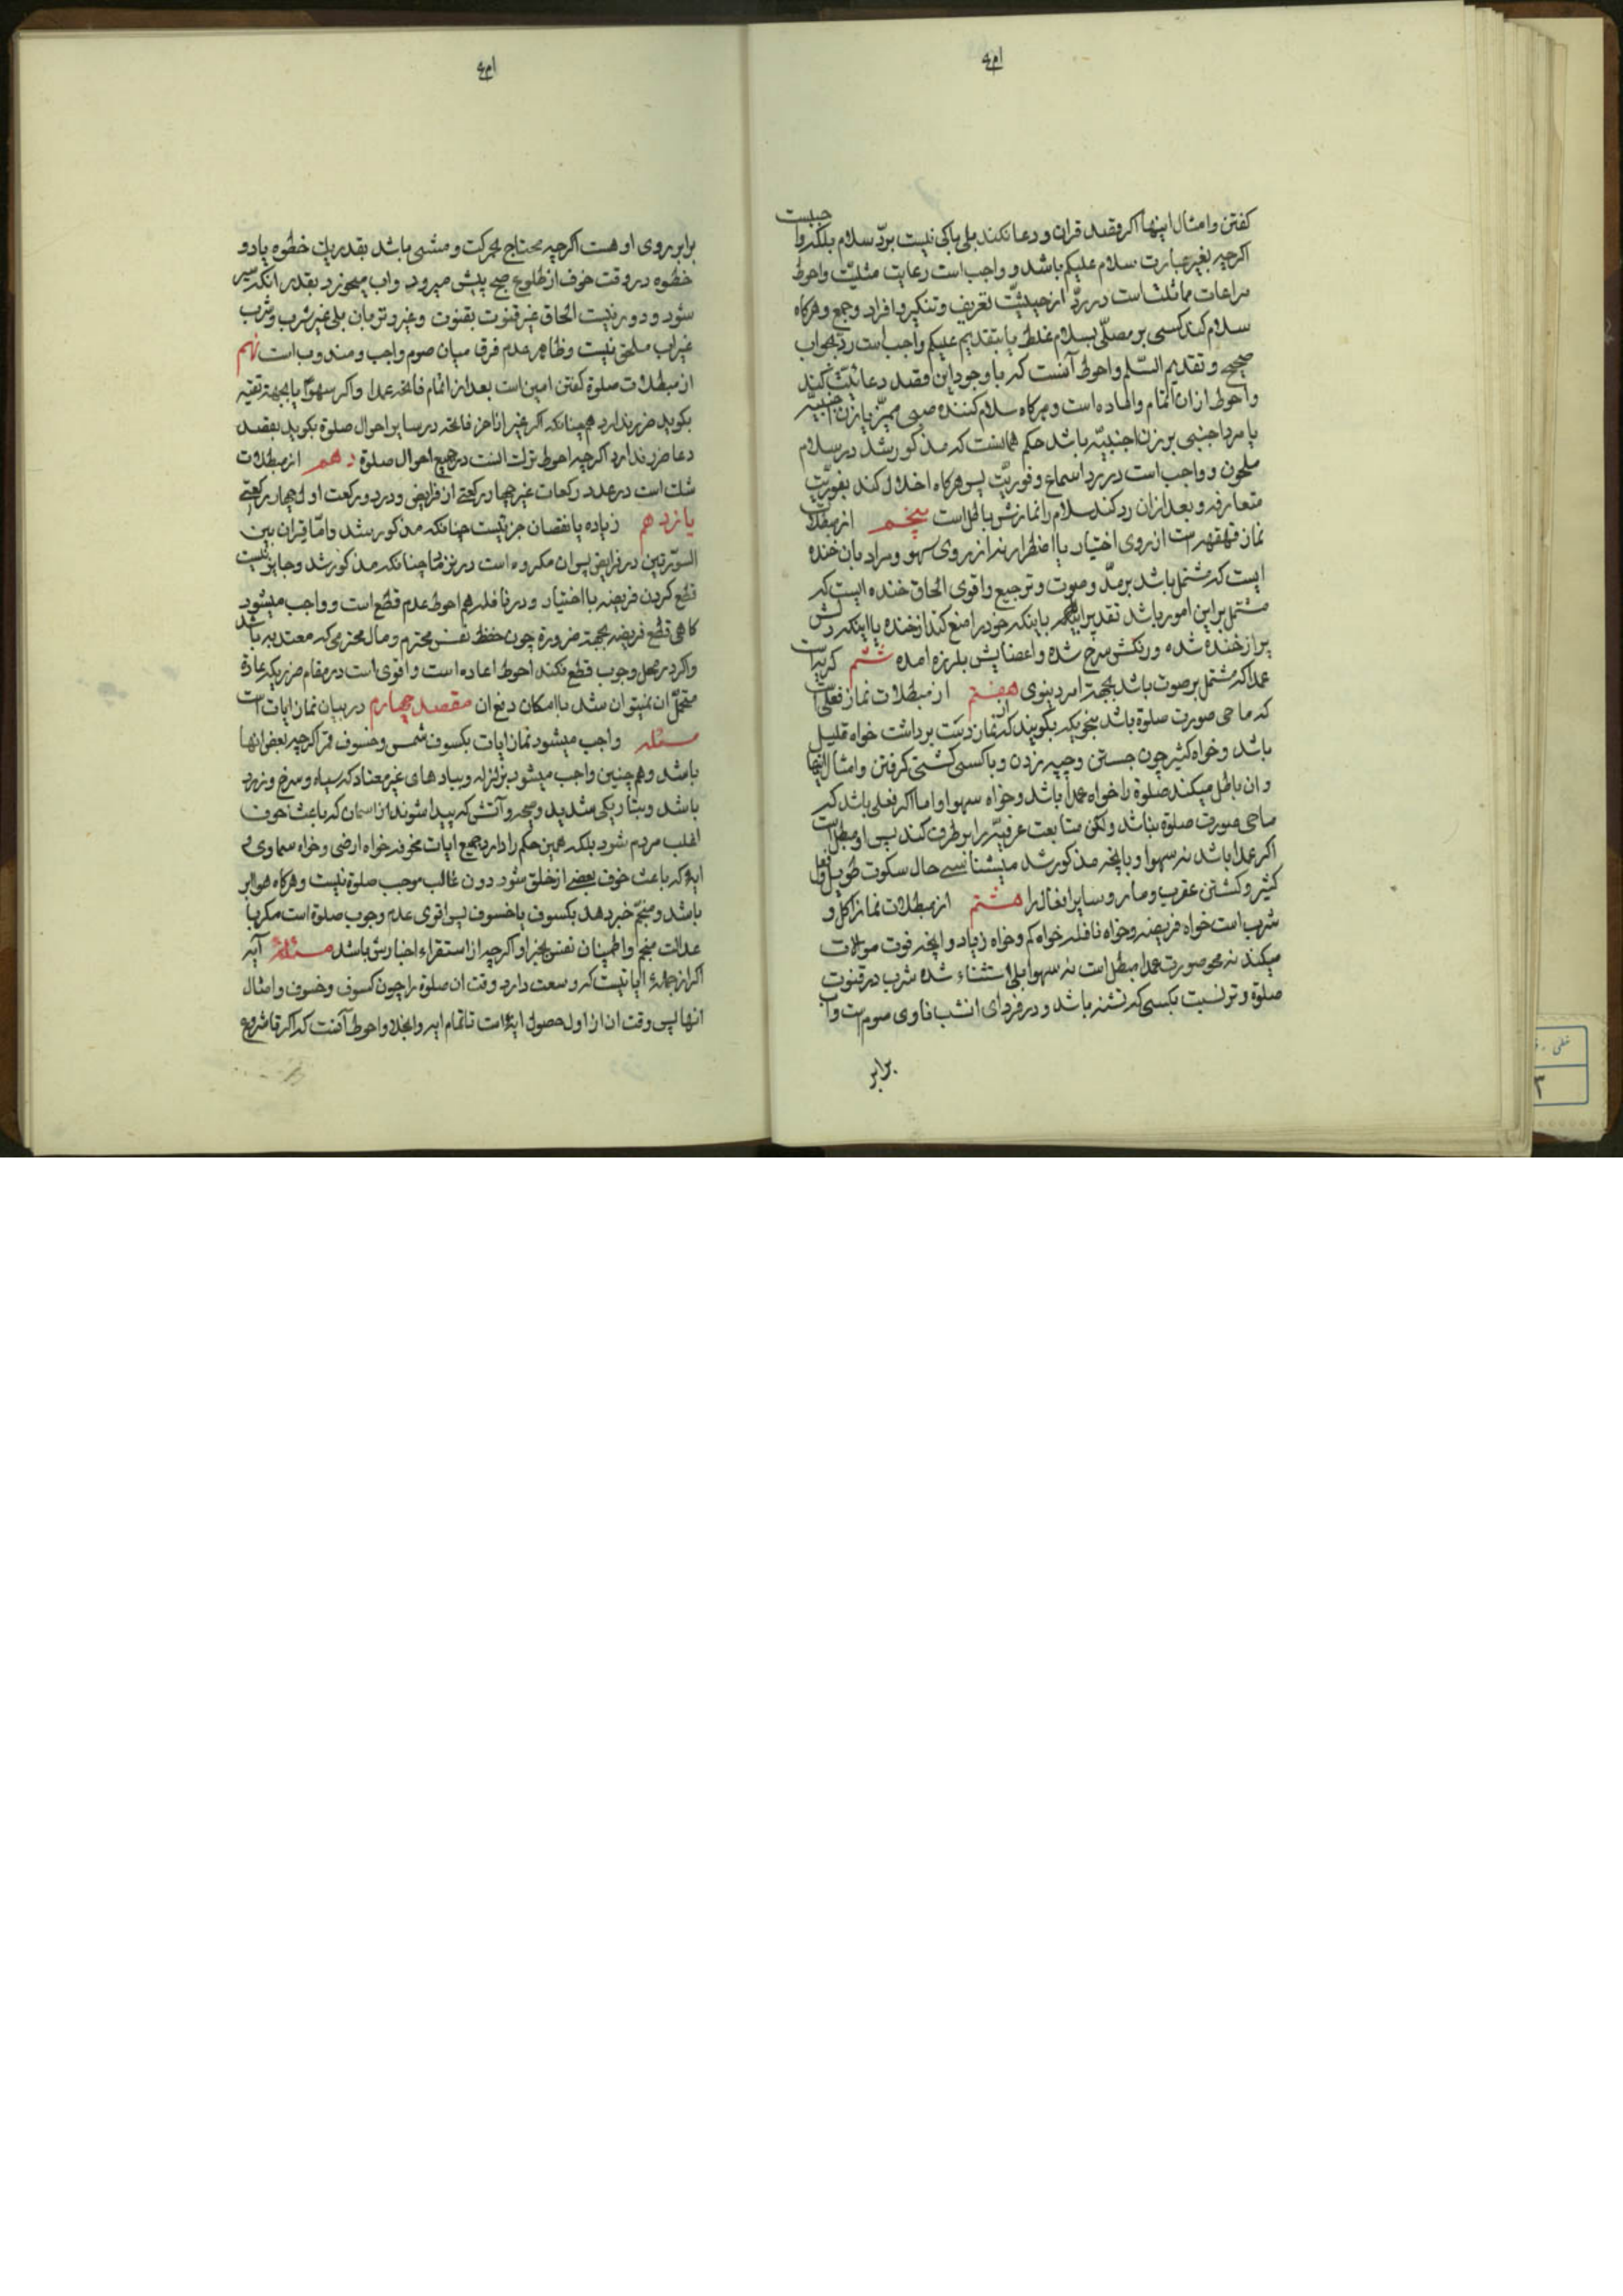 کفتن و امثال اینها اکر قصد قران و دعا نکند بلی باکی نیست بردّ سلام بلکه واجبست
اکرچه بغیر عبارت سلام علیکم باشد و واجب است رعایت مثلیّت و احوط
مراعات مماثلت است در ردّ از حیثیّت تعریف و تنکیر و افراد و جمع و هرکاه
سلام کند کسی بر مصلّی بسلام غلط یا بتقدیم علیکم واجب است رد بجواب
صحیح و تقدیم السّلم و احوط آنست که با وجود این قصد دعائیّت کند
و احوط از ان اتمام و اعاده است و هرکاه سلام کننده صبی ممیّز یا زن اجنبیّه
یا مرد اجنبی بر زن اجنبیّه باشد حکم همانست که مذکور شد در سلام
ملحون و واجب است در رد اسماع و فوریّت پس هرکاه اخلال کند بفوریّت
متعارفه و بعد از ان رد کند سلام را نمازش باطل است پنجم از مبطلات
نماز قهقهه است از روی اختیار یا اضطرار نه از روی سهو و مراد بان خنده
ایست که مشتمل باشد بر مدّ و صوت و ترجیع و اقوی الحاق خنده ایست که
مشتمل بر این امور باشد تقدیرا باینکه خود را منع کند از خنده یا اینکه دلش
پر از خنده شده و رنکش سرخ شده و اعضایش بلرزه امده ششم کریه است
عمدا که مشتمل بر صوت باشد بجهة امر دنیوی هفتم از مبطلات نماز فعلی است
که ماحی صورت صلوة باشد بنحویکه بکویند که از نماز دست برداشت خواه قلیل
باشد و خواه کثیر چون جستن و چپه زدن و با کسی کشتی کرفتن و امثال اینها
و ان باطل میکند صلوة را خواه عمدا باشد و خواه سهوا و اما اکر فعلی باشد که
ماحی صورت صلوة نباشد ولکن متابعت عرفیّه را بر طرف کند پس او مبطل است
اکر عمدا باشد نه سهوا و بانچه مذکور شد میشناسی حال سکوت طویل و فعل
کثیر و کشتن عقرب و مار و سایر افعال را هشتم از مبطلات نماز اکل و
شرب است خواه فریضه و خواه نافله خواه کم و خواه زیاد و انچه فوت موالات
میکند نه محو صورت عمدا مبطل است نه سهوا بلی استثناء شده شرب در قنوت
صلوة وتر نسبت بکسی که تشنه باشد و در فردای انشب ناوی صوم است و اب
برابر
برابر روی او هست اکرچه محتاج بحرکت و مشی باشد بقدر یک خطوه یا دو
خطوه در وقت خوف از طلوع صبح پیش میرود و اب میخورد بقدر انکه سیر
شود و دور نیست الحاق غیر قنوت بقنوت و غیر وتر بان بلی غیر شرب و شرب
غیر اب ملحق نیست و ظاهر عدم فرق میان صوم واجب و مندوب است نهم
از مبطلات صلوة کفتن امین است بعد از اتمام فاتحه عمدا و اکر سهوا یا بجهة تقیه
بکوید ضرر ندارد همچنانکه اکر غیر از اخر فاتحه در سایر احوال صلوة بکوید بقصد
دعا ضرر ندارد اکرچه احوط ترک انست در جمیع احوال صلوة دهم از مبطلات
شک است در عدد رکعات غیر چهار رکعتی از فرایض و در دو رکعت اول چهار رکعتی
یازدهم زیاده یا نقصان جزئیست چنانکه مذکور شد و امّا قران بین
السورتین در فرایض پس ان مکروه است در نزد ما چنانکه مذکور شد و جایز نیست
قطع کردن فریضه با اختیار و در نافله هم احوط عدم قطع است و واجب میشود
کاهی قطع فریضه بجهة ضرورة چون حفظ نفس محترم و مال محترمی که معتد به باشد
و اکر در محل وجوب قطع نکند احوط اعاده است و اقوی است در مقام ضرریکه عادة
متحمل ان نمیتوان شد با امکان دفع ان مقصد چهارم در بیان نماز ایات است
مسئله واجب میشود نماز ایات بکسوف شمس و خسوف قمر اکرچه بعض انها
باشد و همچنین واجب میشود بزلزله و بباد های غیر معتاد که سیاه و سرخ و زرد
باشد و بتاریکی شدید و صیحه و آتشی که پیدا شوند از اسمان که باعث خوف
اغلب مردم شود بلکه همین حکم را دارد جمیع ایات مخوفه خواه ارضی و خواه سماوی و
ایۀ که باعث خوف بعضی از خلق شود دون غالب موجب صلوة نیست و هرکاه هوا ابر
باشد و منجّم خبر دهد بکسوف یا خسوف پس اقوی عدم وجوب صلوة است مکر با
عدالت منجم و اطمینان نفس بخبر او اکرچه از استقراء اخبارش باشد مسئله آیه
اکر از جملۀ ایاتیست که وسعت دارد وقت ان صلوة را چون کسوف و خسوف و امثال
انها پس وقت ان از اول حصول ایة است تا تمام و احوط آنست که اکر تا شروع